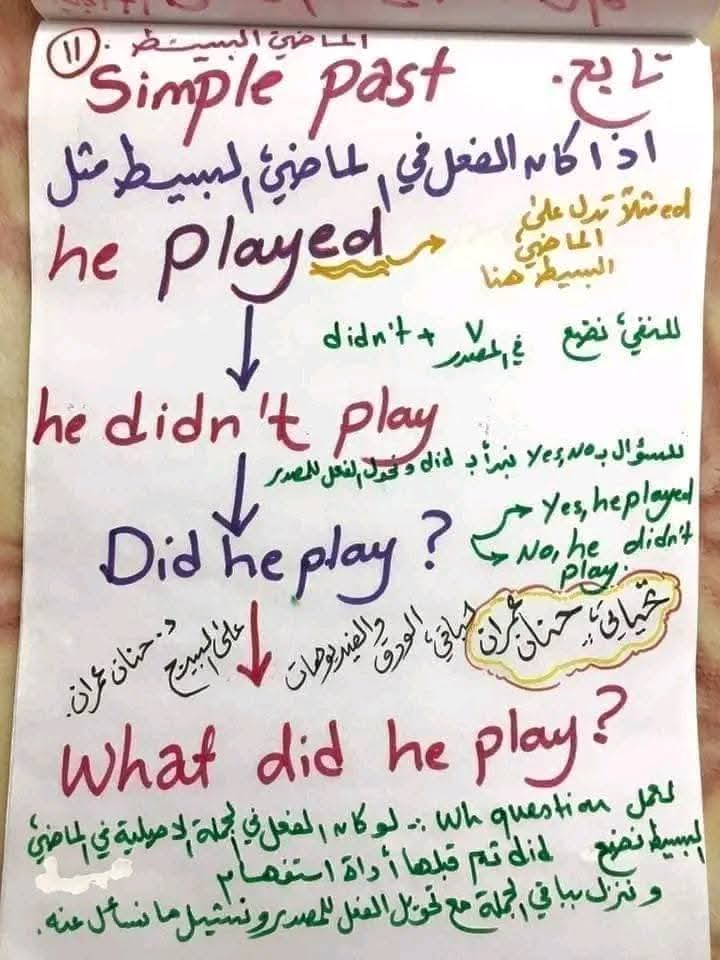 ١١
الماضي البسيط
Simple past تابع.
اذا كان الفعل في الماضي البسيط مثل
he played
ed مثلاً تدل على
الماضي
البسيط هنا
للنفي نضع
didn't + v في المصدر
he didn't play
للسؤال بـ yes, No نبدأ بـ did ونحول الفعل للمصدر
Did he play ?
Yes, he played
No, he didn't
play.
تحياتي حنان عمران
باقي الورق
والفيديوهات
على البيدج
د. حنان عمران.
What did he play?
لعمل Wh question :- لو كان الفعل في الجملة الاصلية في الماضي
البسيط نضع did ثم قبلها أداة استفهام
وننزل بباقي الجملة مع تحويل الفعل للمصدر ونشيل ما نسأل عنه.